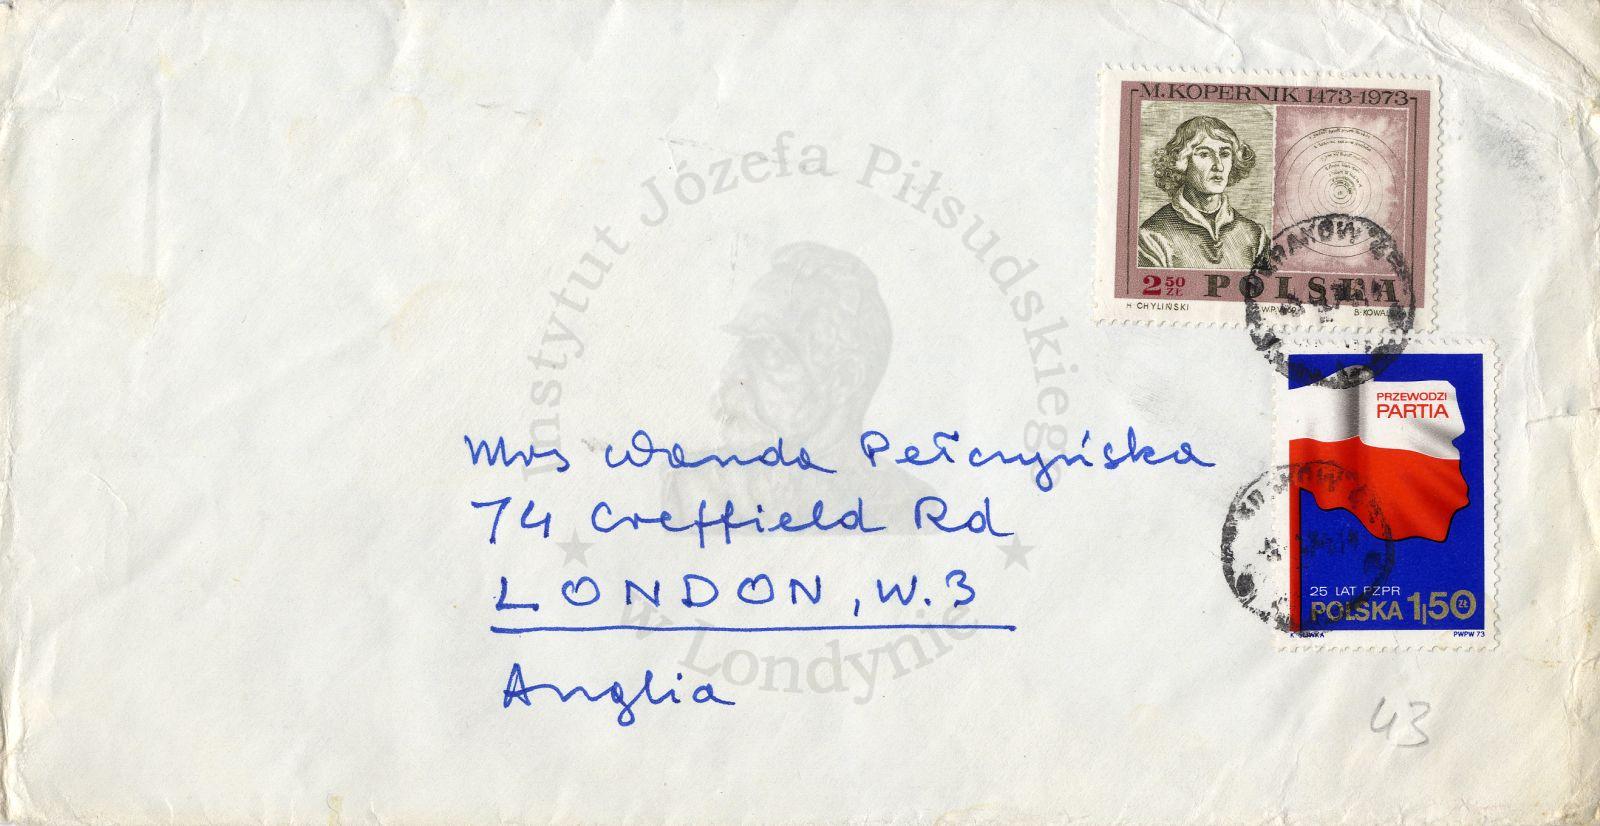 M. KOPERNIK 1473-1973
2 50 ZŁ POLSKA
H. CHYLIŃSKI
PRZEWODZI
PARTIA
25 LAT PZPR
POLSKA 1,50 ZŁ
PWPW 73
Instytut Józefa Piłsudskiego
w Londynie
Mrs Wanda Pełczyńska
74 Creffield Rd
LONDON, W.3
Anglia
43